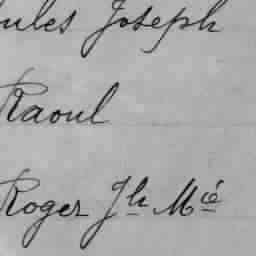 ules Joseph
Raoul
Roger Jh Mie